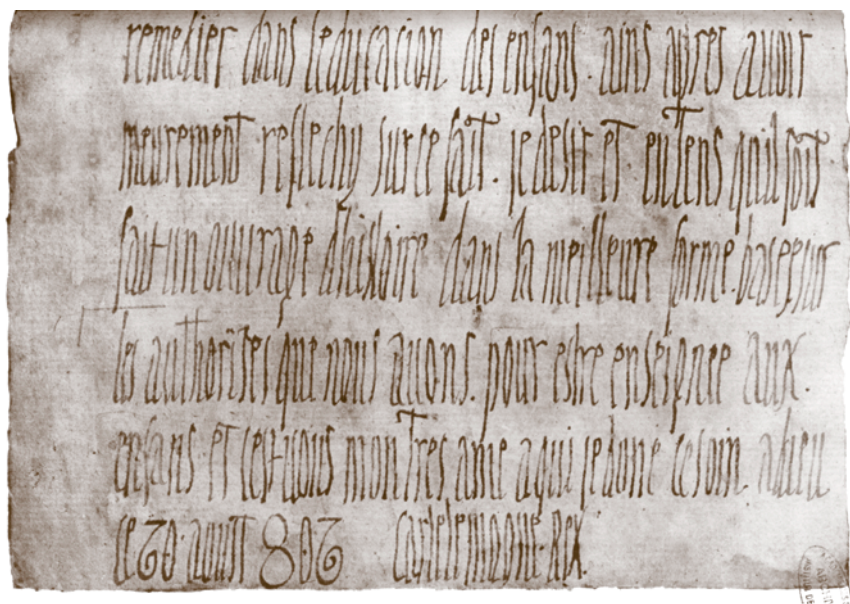 remedier dans leducacion des enfans . ains apres auoir
meurement reflechy sur ce fait . je desir et entens quil soit
fait un ouurage dhistoire dans la meilleure forme . basee sur
les authorites que nous auons . pour estre enseignee aux .
enfans et cest uous mon tres ame a qui je done ce soin adieu
ce 20 802 Rex